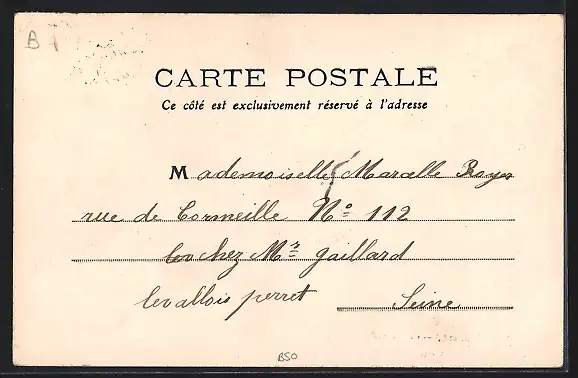 B
CARTE POSTALE
Ce côté est exclusivement réservé à l'adresse
Mademoiselle Marcelle Royer
rue de Cormeille No 112
chez Mr Gaillard
levallois perret Seine
BSO